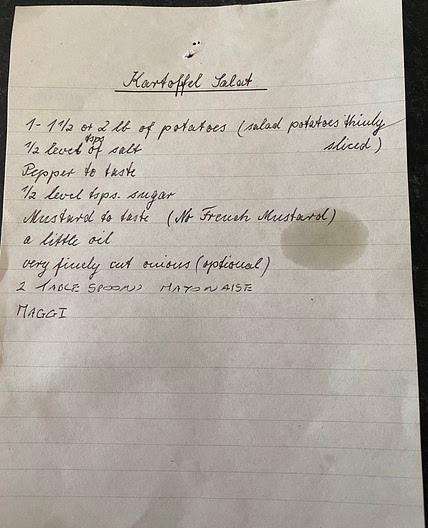 Kartoffel Salat
1 - 1 1/2 or 2 lb of potatoes (salad potatoes thinly
1/2 level tsps of salt sliced)
Pepper to taste
1/2 level tsps. sugar
Mustard to taste (No French Mustard)
a little oil
very finely cut onions (optional)
2 TABLE SPOONS MAYONAISE
MAGGI